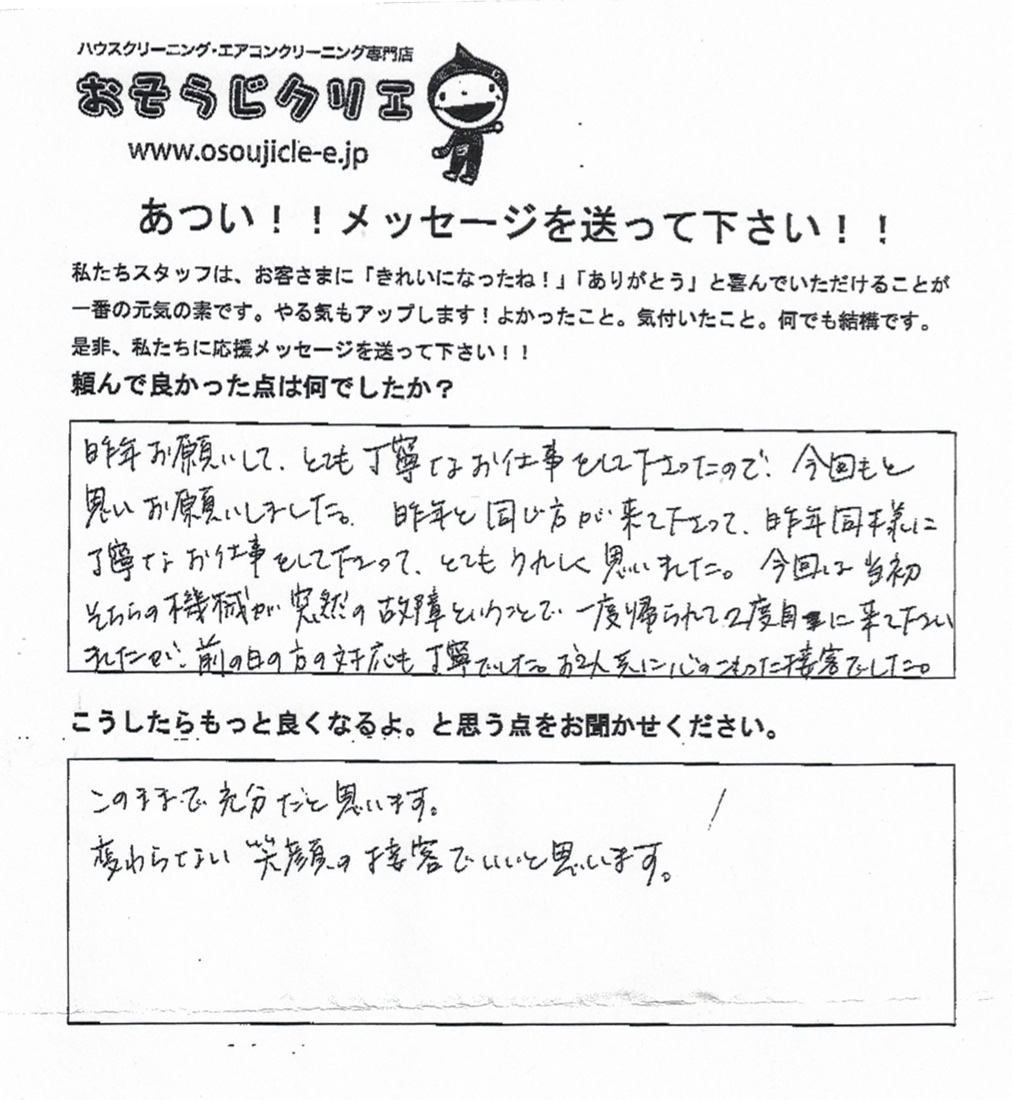 ハウスクリーニング・エアコンクリーニング専門店
おそうじクリエ
www.osoujicle-e.jp
あつい！！メッセージを送って下さい！！
私たちスタッフは、お客さまに「きれいになったね！」「ありがとう」と喜んでいただけることが
一番の元気の素です。やる気もアップします！よかったこと。気付いたこと。何でも結構です。
是非、私たちに応援メッセージを送って下さい！！
頼んで良かった点は何でしたか？
昨年お願いして、とても丁寧なお仕事をして下さったので、今回もと
思いお願いしました。昨年と同じ方が来て下さって、昨年同様に
丁寧なお仕事をして下さって、とてもうれしく思いました。今回は当初
そちらの機械が突然の故障ということで一度帰られて2度目に来て下さい
ましたが、前の日の方の対応も丁寧でした。お2人共に心のこもった接客でした。
こうしたらもっと良くなるよ。と思う点をお聞かせください。
このままで充分だと思います。
変わらない笑顔の接客でいいと思います。